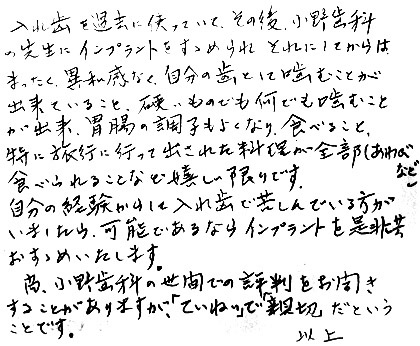 入れ歯を過去に使っていて、その後、小野歯科
の先生にインプラントをすすめられ それにしてからは
まったく異和感なく、自分の歯として噛むことが
出来ていること、硬いものでも何でも噛むこと
が出来、胃腸の調子もよくなり、食べること、
特に旅行に行って出された料理が全部(あわびなど)
食べられることなど嬉しい限りです。
自分の経験からして入れ歯で苦しんでいる方が
いましたら、可能であるならインプラントを是非共
おすすめいたします。
尚、小野歯科の世間での評判をお聞き
することがありますが、「ていねい」で「親切」だという
ことです。
以上